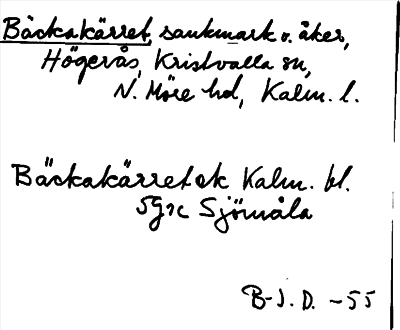 Bäckakärret, sankmark o. åker,
Högerås, Kristvalla sn,
N. Möre hd, Kalm. l.
Bäckakärret ek Kalm. bl.
5g1c Sjömåla
B-J. D. -55